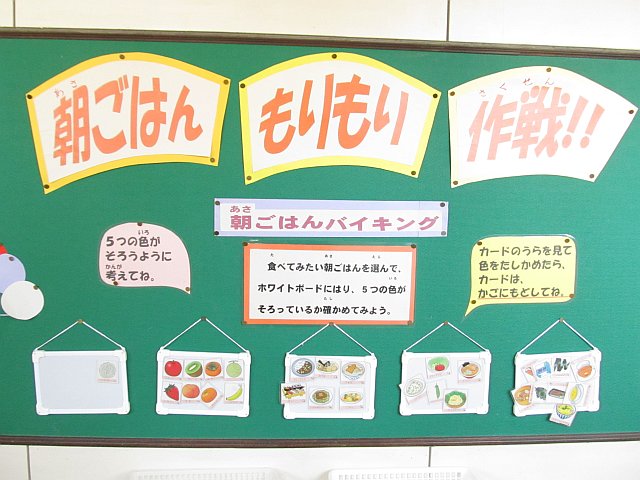 あさ
朝ごはん
もりもり
さくせん
作戦!!
あさ
朝ごはんバイキング
いろ
5つの色が
そろうように
かんが
考えてね。
た あさ えら
食べてみたい朝ごはんを選んで、
いろ
ホワイトボードにはり、5つの色が
たし
そろっているか確かめてみよう。
カードのうらを見て
色をたしかめたら、
カードは、
かごにもどしてね。